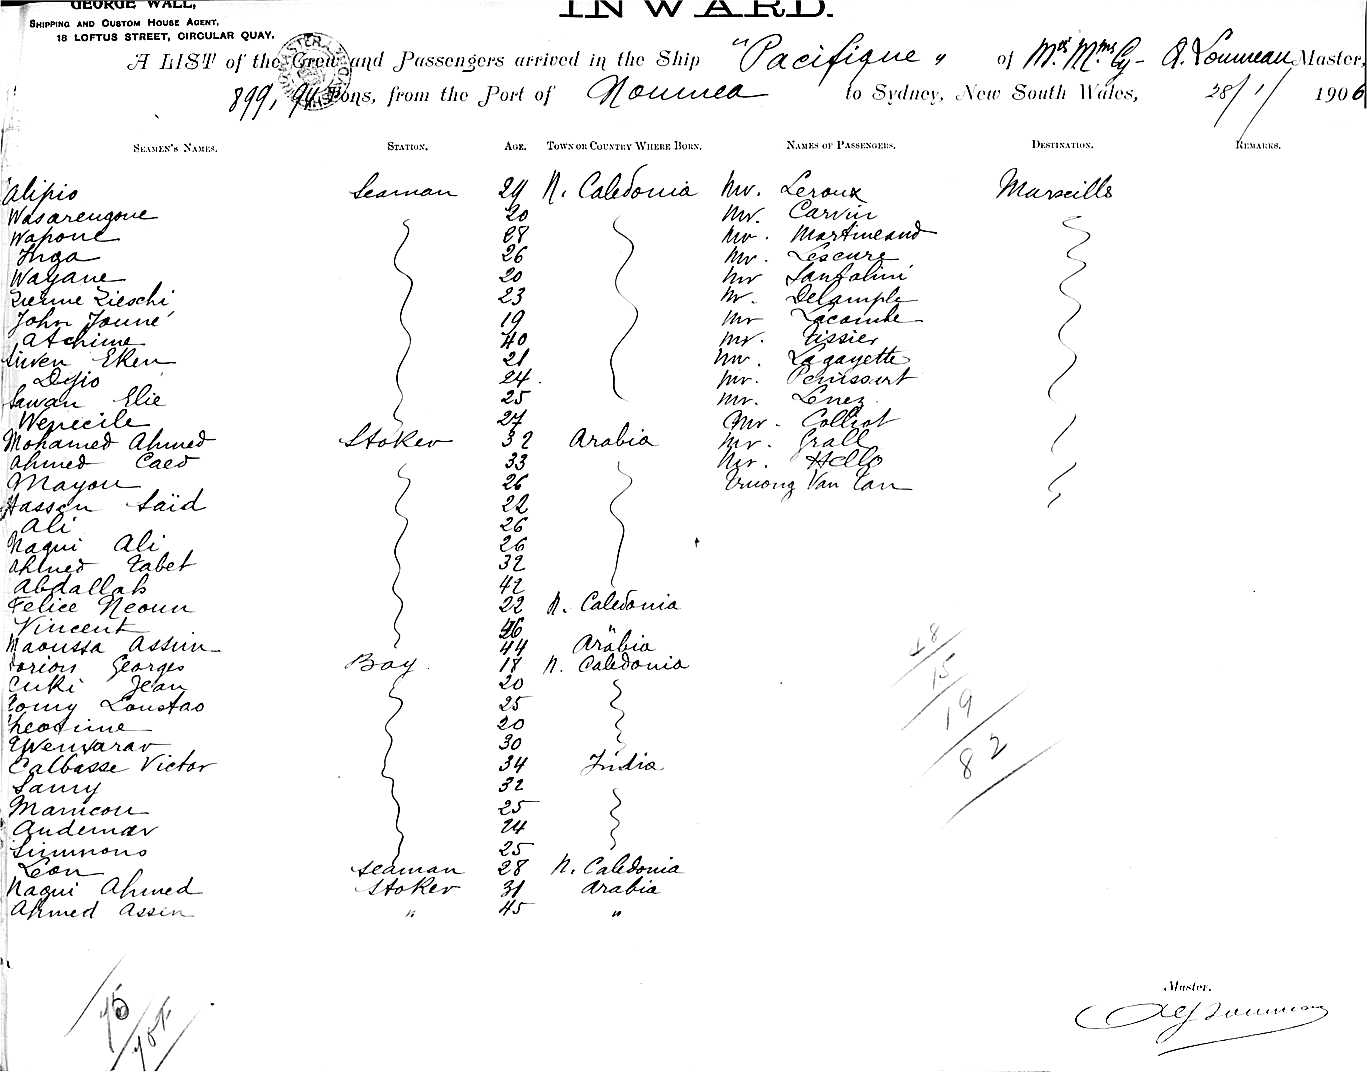 GEORGE WALL,
SHIPPING AND CUSTOM HOUSE AGENT,
18 LOFTUS STREET, CIRCULAR QUAY.
INWARD.
A LIST of the Crew and Passengers arrived in the Ship "Pacifique" of Master,
899, 94 Tons, from the Port of Noumea to Sydney, New South Wales, 28/1/ 1906
SEAMEN'S NAMES. STATION. AGE. TOWN OR COUNTRY WHERE BORN. NAMES OF PASSENGERS. DESTINATION. REMARKS.
Alipio Seaman 29 N. Caledonia Mr. Leroux Marseille
Wasarengone 20 Mr. Carvin
Wapone 28 Mr. Martineaud
Inga 26 Mr. Lescure
Wayane 20 Mr Santolini
Zieschi 23 Mr. Delample
John Jouné 19 Mr Lacombe
Atchime 40 Mr. Tissier
Eken 21 Mr. Lagayette
24 Mr. Penissort
Sawan Elie 25 Mr. Lenez
Wenecile 27 Mr. Colliot
Mohamed Ahmed Stoker 32 Arabia Mr. Grall
Ahmed Caed 33 Mr. Hello
Mayou 26 Truong Van Tan
Hassen Saïd 22
Ali 26
Nagui Ali 26
Ahmed Tabet 32
Abdallah 42
Felice Neoun 22 N. Caledonia
Vincent 46 "
Maoussa Assim 44 Arabia
Georges Boy 18 N. Caledonia
Cuki Jean 20
Tomy Loustao 25
Theotime 20
30
Calbasse Victor 34 India
Samy 32
Manicou 25
Andemar 24
Simmons 25
Leon Seaman 28 N. Caledonia
Nagui Ahmed Stoker 31 Arabia
Ahmed Assin " 45 "
48
15
19
82
Master.